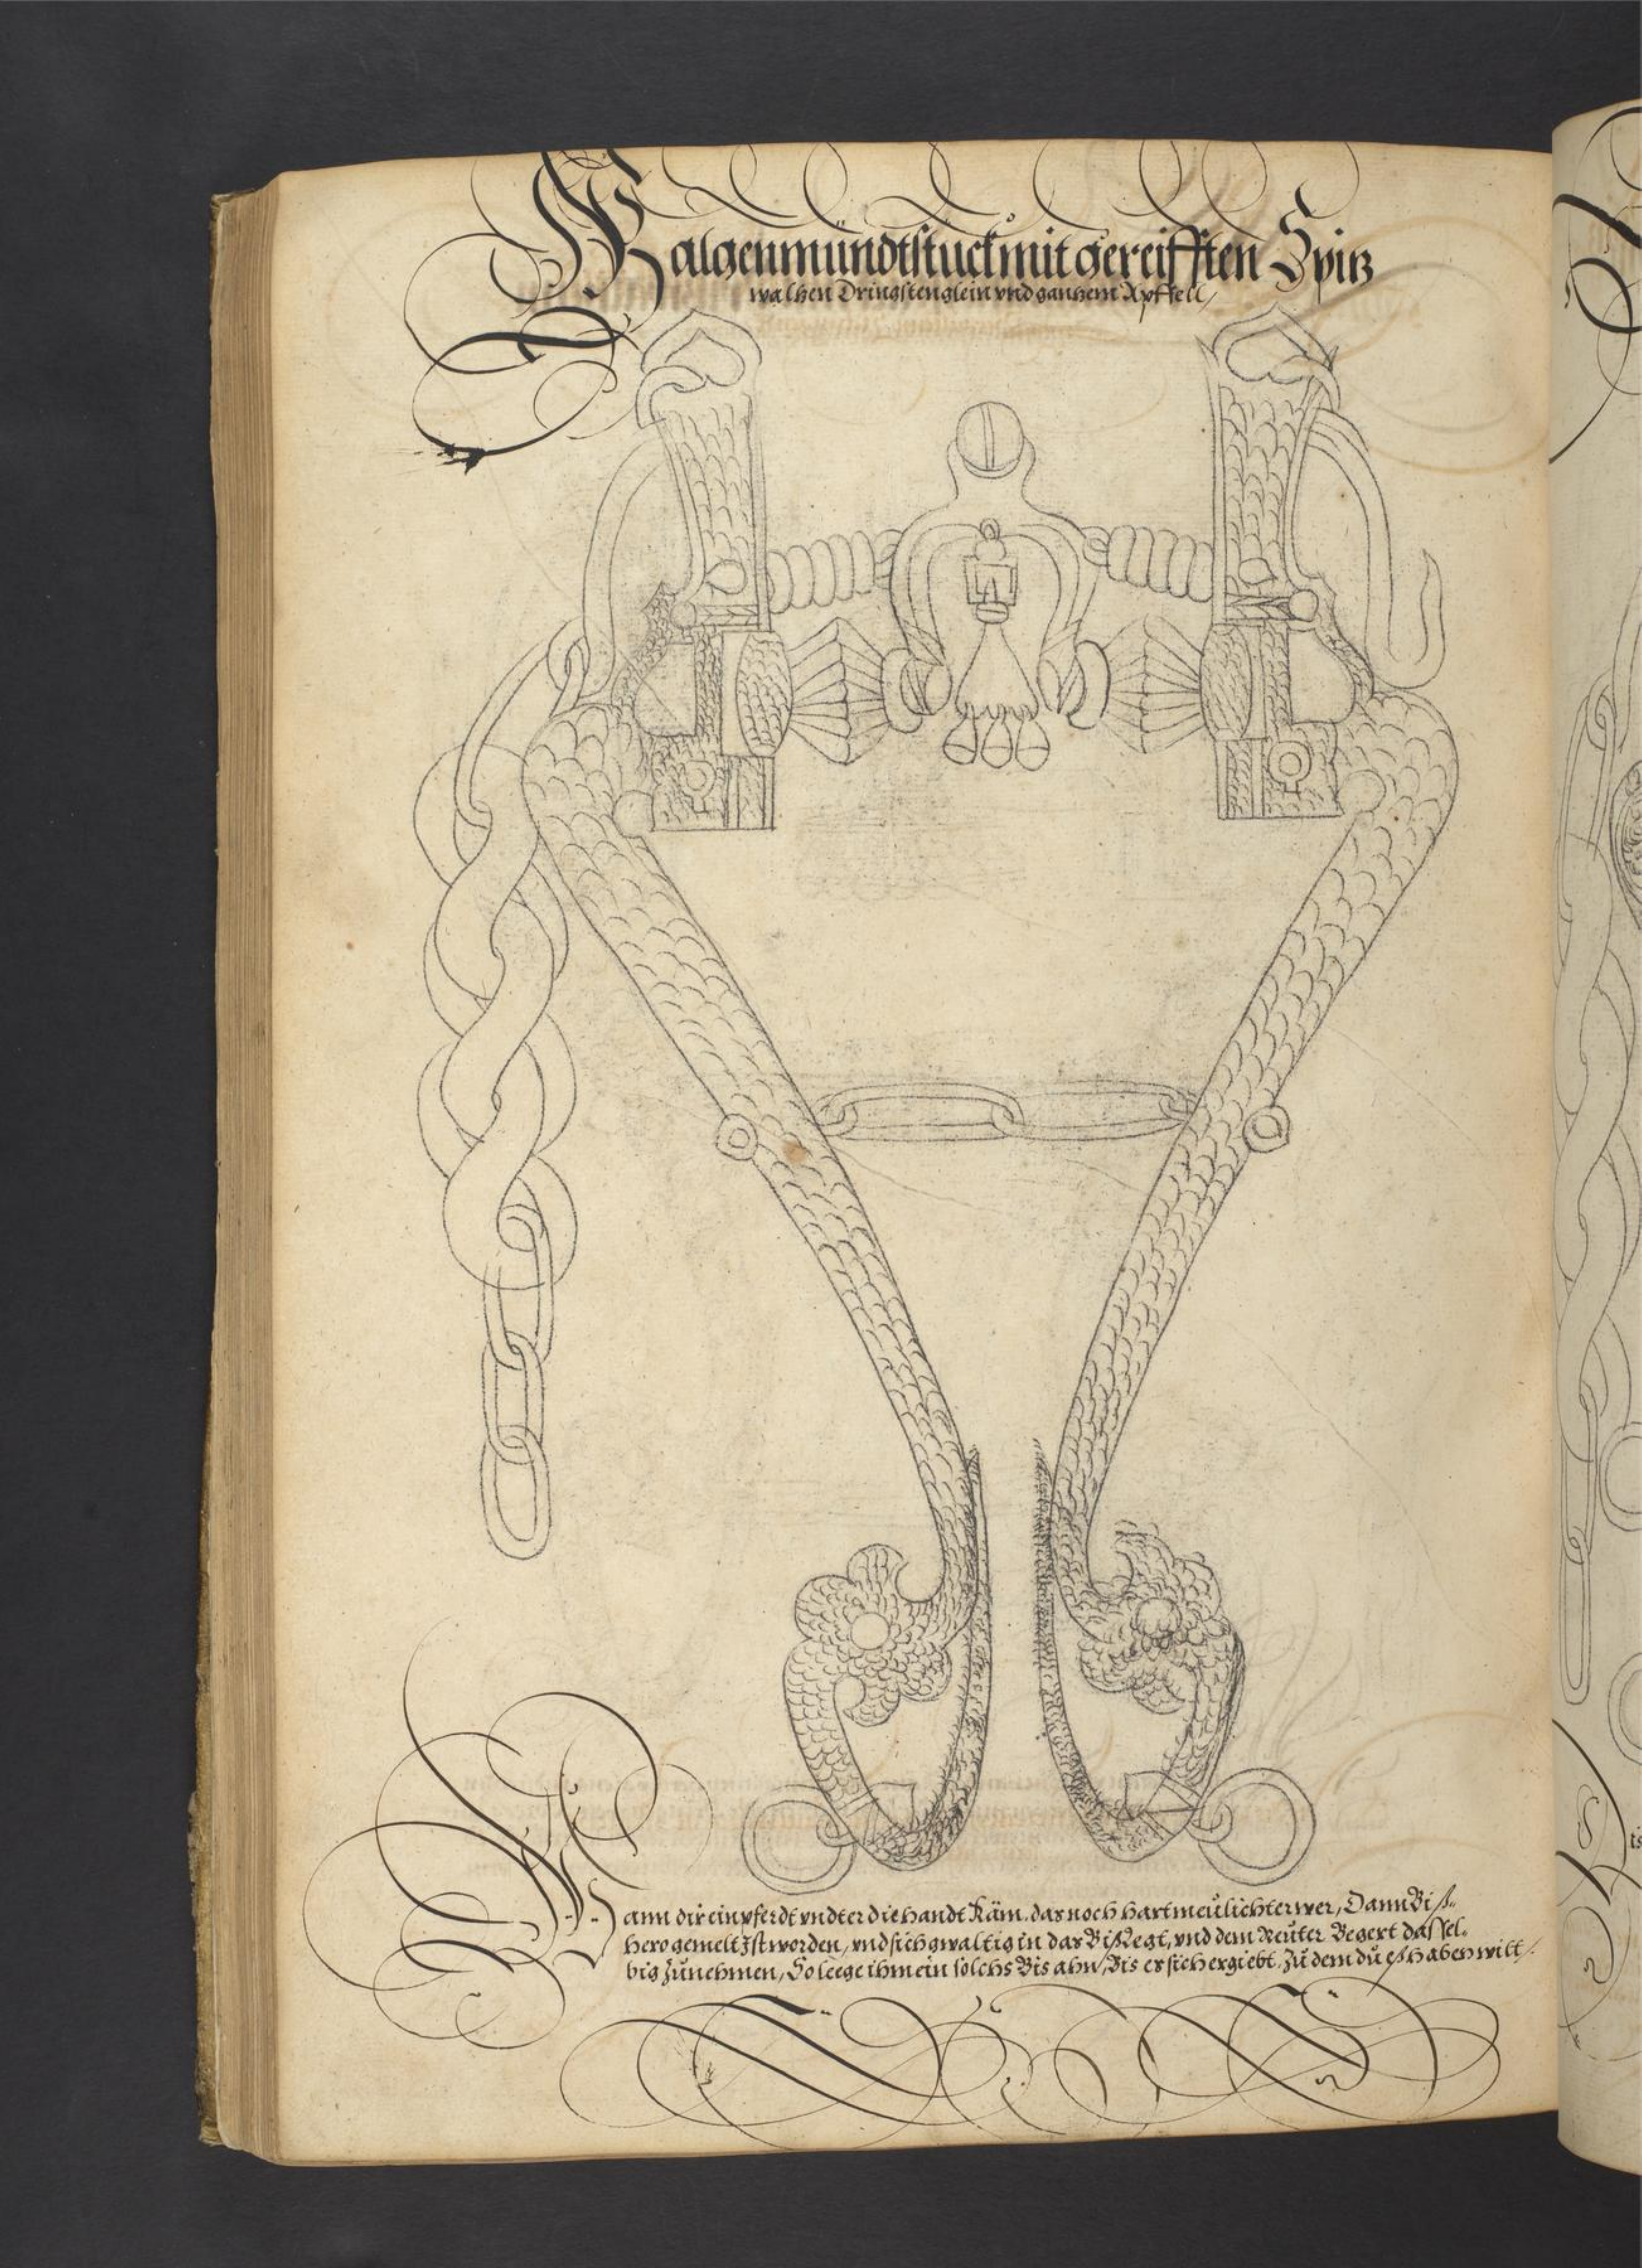 Galgenmündtstuckmit gereifften Spitz
walhen Dringstenglein vnd ganhem Apffell/
Wann dir ein pferdt vndter die handt Käm. das noch hartmeülichter wer, Dann Biß„
hero gemelt Ist worden, vnd sich gwaltig in das Biß legt, vnd dem Reuter Begert dassel„
big zünehmen, So leege ihm ein solchs Bis ahn, Bis er sich ergiebt. Zü dem dü eß haben wilt/.